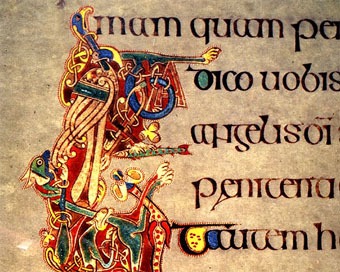 mam quam per
dico uobis
angelis di s
penitentia
autem h